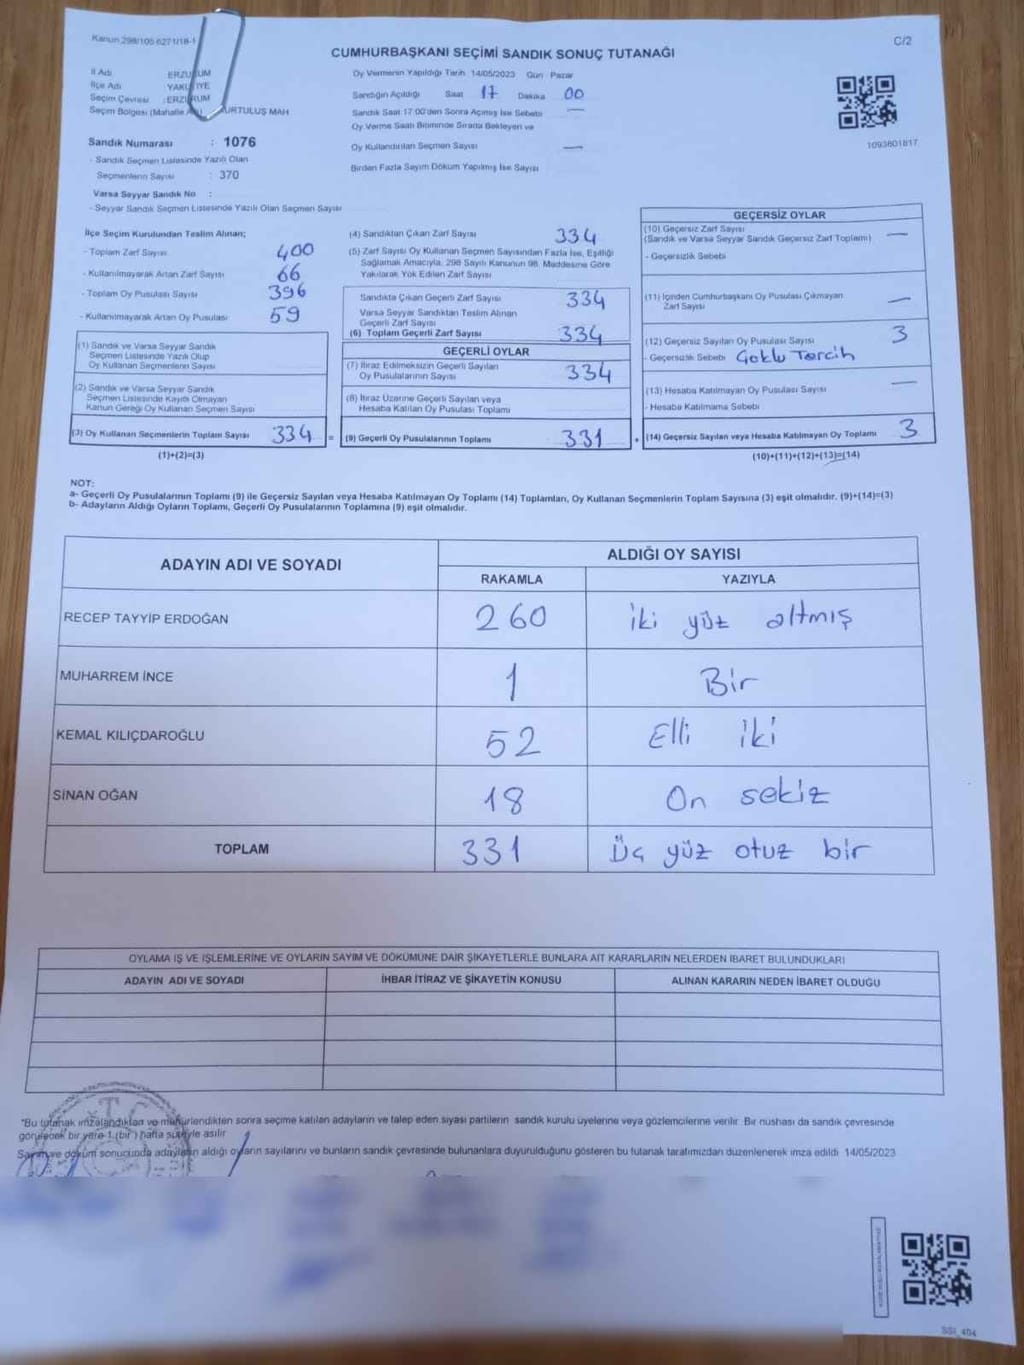 Kanun 298/105 6271/18-1
C/2
CUMHURBAŞKANI SEÇİMİ SANDIK SONUÇ TUTANAĞI
İl Adı ERZURUM
İlçe Adı YAKUTİYE
Seçim Çevresi :ERZURUM
Seçim Bölgesi (Mahalle KURTULUŞ MAH
Sandık Numarası : 1076
- Sandık Seçmen Listesinde Yazılı Olan
Seçmenlerin Sayısı : 370
Varsa Seyyar Sandık No :
- Seyyar Sandık Seçmen Listesinde Yazılı Olan Seçmen Sayısı
Oy Vermenin Yapıldığı Tarih 14/05/2023 Gün Pazar
Sandığın Açıldığı Saat 17 Dakika 00
Sandık Saat 17:00'den Sonra Açılmış İse Sebebi —
Oy Verme Saati Bitiminde Sırada Bekleyen ve
Oy Kullandırılan Seçmen Sayısı —
Birden Fazla Sayım Döküm Yapılmış İse Sayısı
1093601817
İlçe Seçim Kurulundan Teslim Alınan;
- Toplam Zarf Sayısı 400
- Kullanılmayarak Artan Zarf Sayısı 66
- Toplam Oy Pusulası Sayısı 396
- Kullanılmayarak Artan Oy Pusulası 59
(1) Sandık ve Varsa Seyyar Sandık
Seçmen Listesinde Yazılı Olup
Oy Kullanan Seçmenlerin Sayısı
(2) Sandık ve Varsa Seyyar Sandık
Seçmen Listesinde Kayıtlı Olmayan
Kanun Gereği Oy Kullanan Seçmen Sayısı
(3) Oy Kullanan Seçmenlerin Toplam Sayısı 334 =
(1)+(2)=(3)
(4) Sandıktan Çıkan Zarf Sayısı 334
(5) Zarf Sayısı Oy Kullanan Seçmen Sayısından Fazla İse, Eşitliği
Sağlamak Amacıyla, 298 Sayılı Kanunun 98. Maddesine Göre
Yakılarak Yok Edilen Zarf Sayısı
Sandıkta Çıkan Geçerli Zarf Sayısı 334
Varsa Seyyar Sandıktan Teslim Alınan
Geçerli Zarf Sayısı
(6) Toplam Geçerli Zarf Sayısı 334
GEÇERLİ OYLAR
(7) İtiraz Edilmeksizin Geçerli Sayılan
Oy Pusulalarının Sayısı 334
(8) İtiraz Üzerine Geçerli Sayılan veya
Hesaba Katılan Oy Pusulası Toplamı
(9) Geçerli Oy Pusulalarının Toplamı 331 +
GEÇERSİZ OYLAR
(10) Geçersiz Zarf Sayısı —
(Sandık ve Varsa Seyyar Sandık Geçersiz Zarf Toplamı)
- Geçersizlik Sebebi
(11) İçinden Cumhurbaşkanı Oy Pusulası Çıkmayan
Zarf Sayısı —
(12) Geçersiz Sayılan Oy Pusulası Sayısı 3
- Geçersizlik Sebebi Çoklu Tercih
(13) Hesaba Katılmayan Oy Pusulası Sayısı —
- Hesaba Katılmama Sebebi
(14) Geçersiz Sayılan veya Hesaba Katılmayan Oy Toplamı 3
(10)+(11)+(12)+(13)=(14)
NOT:
a- Geçerli Oy Pusulalarının Toplamı (9) ile Geçersiz Sayılan veya Hesaba Katılmayan Oy Toplamı (14) Toplamları, Oy Kullanan Seçmenlerin Toplam Sayısına (3) eşit olmalıdır. (9)+(14)=(3)
b- Adayların Aldığı Oyların Toplamı, Geçerli Oy Pusulalarının Toplamına (9) eşit olmalıdır.
ADAYIN ADI VE SOYADI
ALDIĞI OY SAYISI
RAKAMLA YAZIYLA
RECEP TAYYİP ERDOĞAN 260 iki yüz altmış
MUHARREM İNCE 1 Bir
KEMAL KILIÇDAROĞLU 52 Elli iki
SİNAN OĞAN 18 On sekiz
TOPLAM 331 Üç yüz otuz bir
OYLAMA İŞ VE İŞLEMLERİNE VE OYLARIN SAYIM VE DÖKÜMÜNE DAİR ŞİKAYETLERLE BUNLARA AİT KARARLARIN NELERDEN İBARET BULUNDUKLARI
ADAYIN ADI VE SOYADI İHBAR İTİRAZ VE ŞİKAYETİN KONUSU ALINAN KARARIN NEDEN İBARET OLDUĞU
T.C.
"Bu tutanak imzalandıktan ve mühürlendikten sonra seçime katılan adayların ve talep eden siyasi partilerin sandık kurulu üyelerine veya gözlemcilerine verilir. Bir nüshası da sandık çevresinde
görülecek bir yere 1 (bir) hafta süreyle asılır
Sayım ve döküm sonucunda adayların aldığı oyların sayılarını ve bunların sandık çevresinde bulunanlara duyurulduğunu gösteren bu tutanak tarafımızdan düzenlenerek imza edildi 14/05/2023
SSI_404